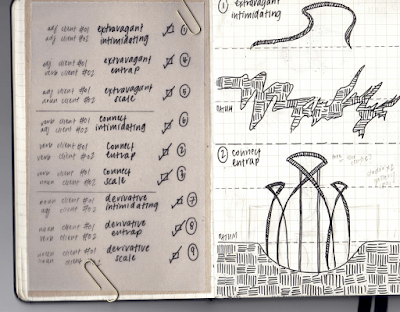 adj client #01 extravagant ①
adj client #02 intimidating
adj client #01 extravagant ④
verb client #02 entrap
adj client #01 extravagant ⑤
noun client #02 scale
verb client #01 connect ⑥
adj client #02 intimidating
verb client #01 connect ②
verb client #02 entrap
verb client #01 connect ③
noun client #02 scale
noun client #01 derivative ⑦
adj client #02 intimidating
noun client #01 derivative ⑧
verb client #02 entrap
noun client #01 derivative ⑨
noun client scale
① extravagant
intimidating
DATUM
② connect
entrap
DATUM